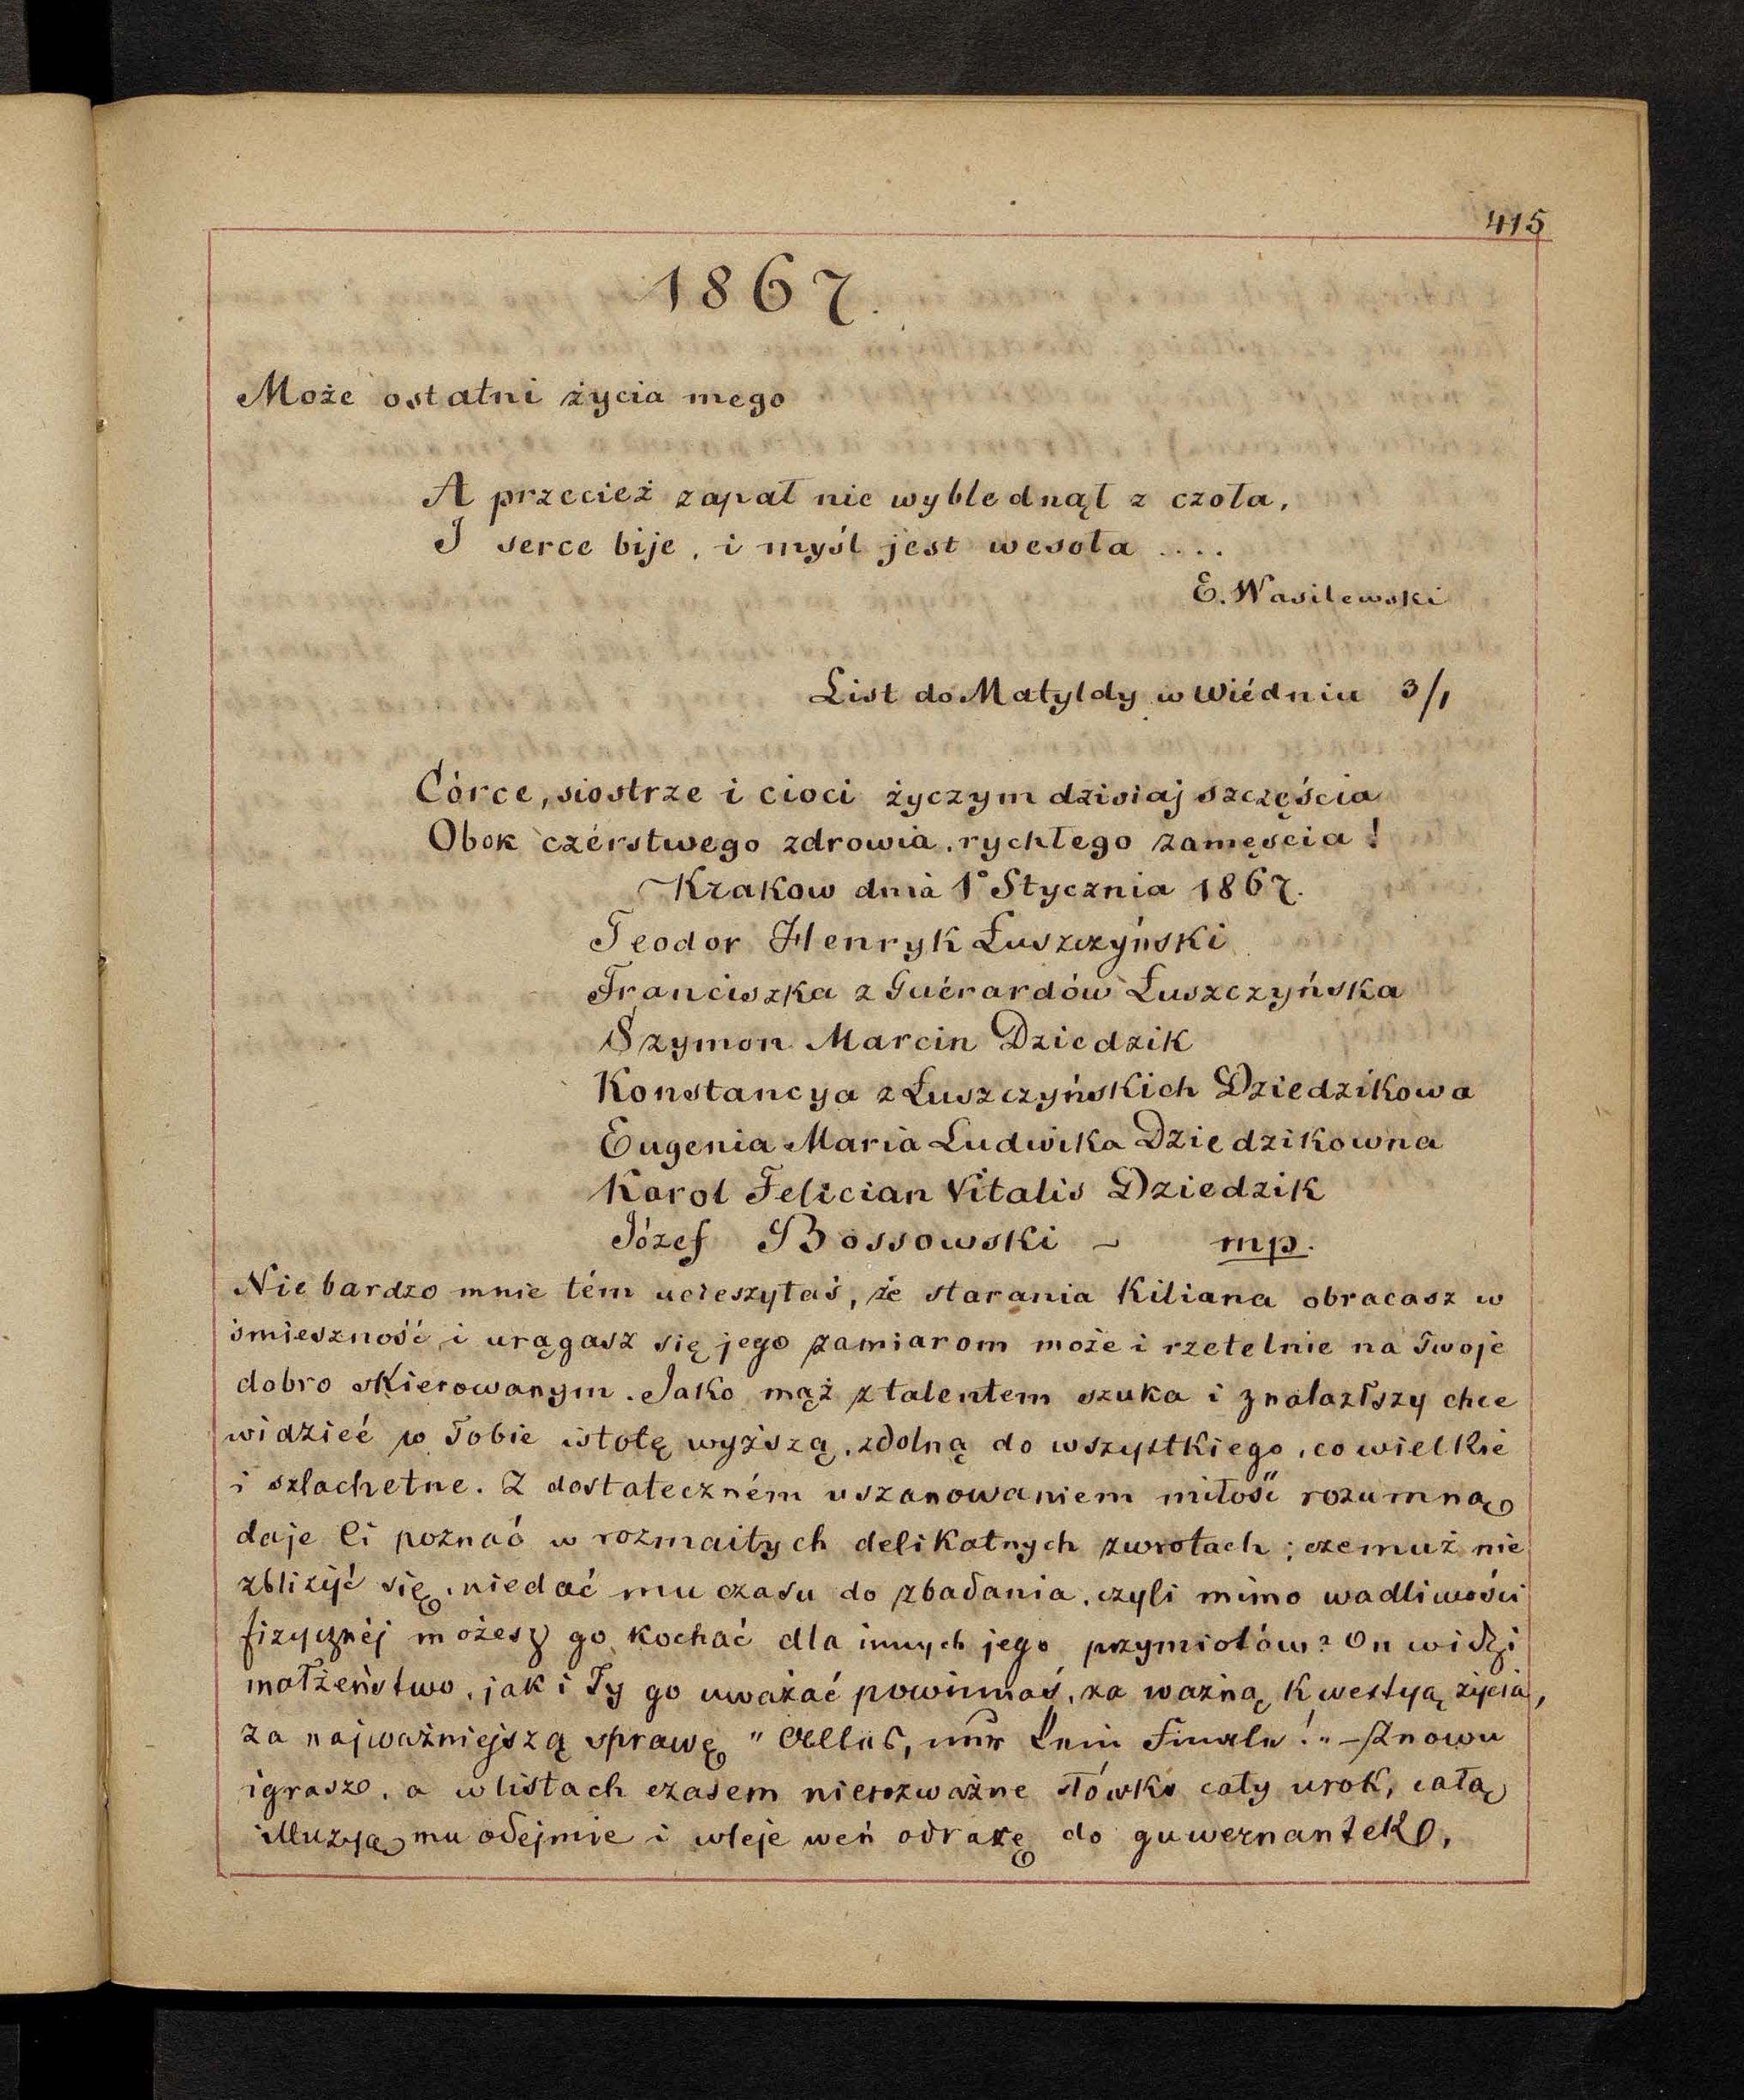 415
1867.
Może ostatni życia mego
A przecież zapał nie wyblednął z czoła,
I serce bije, i myśl jest wesoła ....
E. Wasilewski
List do Matyldy w Wiédniu 3/1
Córce, siostrze i cioci życzym dzisiaj szczęścia
Obok czérstwego zdrowia, rychłego zamęścia!
Krakow dnia 1° Stycznia 1867.
Teodor Henryk Łuszczyński
Franciszka z Guérardów Łuszczyńska
Szymon Marcin Dziedzik
Konstancya z Łuszczyńskich Dziedzikowa
Eugenia Maria Ludwika Dziedzikowna
Karol Felician Vitalis Dziedzik
Józef Bossowski – mp.
Nie bardzo mnie tém ucieszyłaś, że starania Kiliana obracasz w
śmieszność i urągasz się jego zamiarom może i rzetelnie na Twoje
dobro skierowanym. Jako mąż z talentem szuka i znalazłszy chce
widzieć w Tobie istotę wyższą, zdolną do wszystkiego, co wielkie
i szlachetne. Z dostateczném uszanowaniem miłość rozumną
daje Ci poznać w rozmaitych delikatnych zwrotach; czemuż nie
zbliżyć się, niedać mu czasu do zbadania, czyli mimo wadliwości
fizycznéj możesz go kochać dla innych jego przymiotów? On widzi
małżeństwo, jak i Ty go uważać powinnaś, za ważną kwestyą życia,
za najważniejszą sprawę "Alles, nur kein Finale!" – Znowu
igrasz, a w listach czasem nierozważne słówko cały urok, całą
illuzyą mu odejmie i wleje weń odrazę do guwernantek,